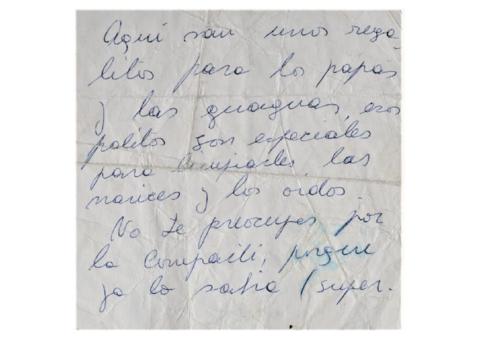 Aquí van unos rega-
litos para los papas
y las guaguas, esos
palitos son especiales
para limpiarles las
narices y los oidos.
No te preocupes por
la Compañi, porque
ya lo sabia (super-